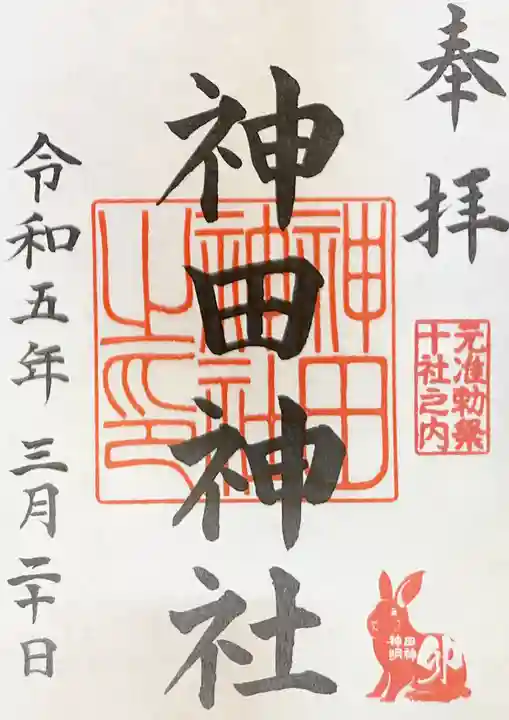 奉拝
元准勅祭
十社之内
神田神社
神田
神社
之印
令和五年 三月二十日
卯